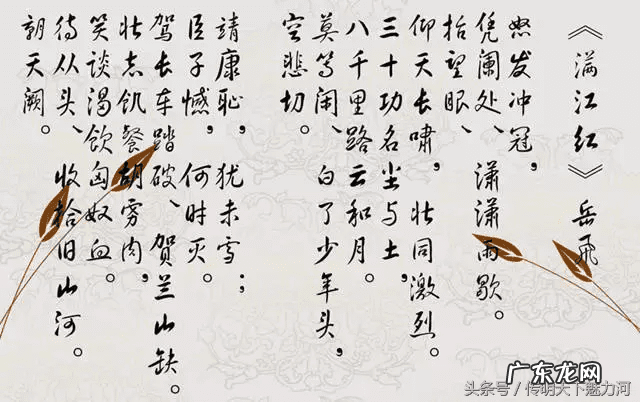 《满江红》岳飞
怒发冲冠,
凭阑处、潇潇雨歇。
抬望眼、
仰天长啸,壮同激烈。
三十功名尘与土,
八千里路云和月。
莫等闲、白了少年头,
空悲切。
靖康耻,犹未雪;
臣子憾,何时灭。
驾长车踏破、贺兰山缺。
壮志饥餐胡虏肉,
笑谈渴饮匈奴血。
待从头、收拾旧山河。
朝天阙。
广东龙网
头条号 / 传明天下魅力河